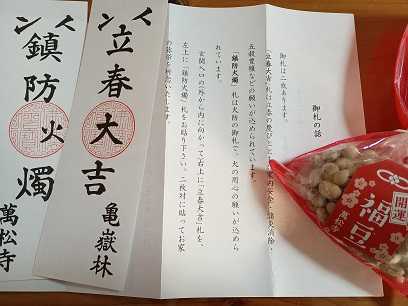 鎮防火燭
萬松寺
立春大吉
亀嶽林
御札の話
御札は二枚あります。
「立春大吉」札は立春の慶びと
家内安全・諸災消除、
五穀豊穣などの願いが込められています。
「鎮防火燭」札は火防の御札で、火の用心の願いが込めら
れています。
玄関入口の(外から内に向かって右上に「立春大吉」札を、
左上に「鎮防火燭」札をお貼り下さい。二枚対に貼ってお家
開運
福豆
萬松寺